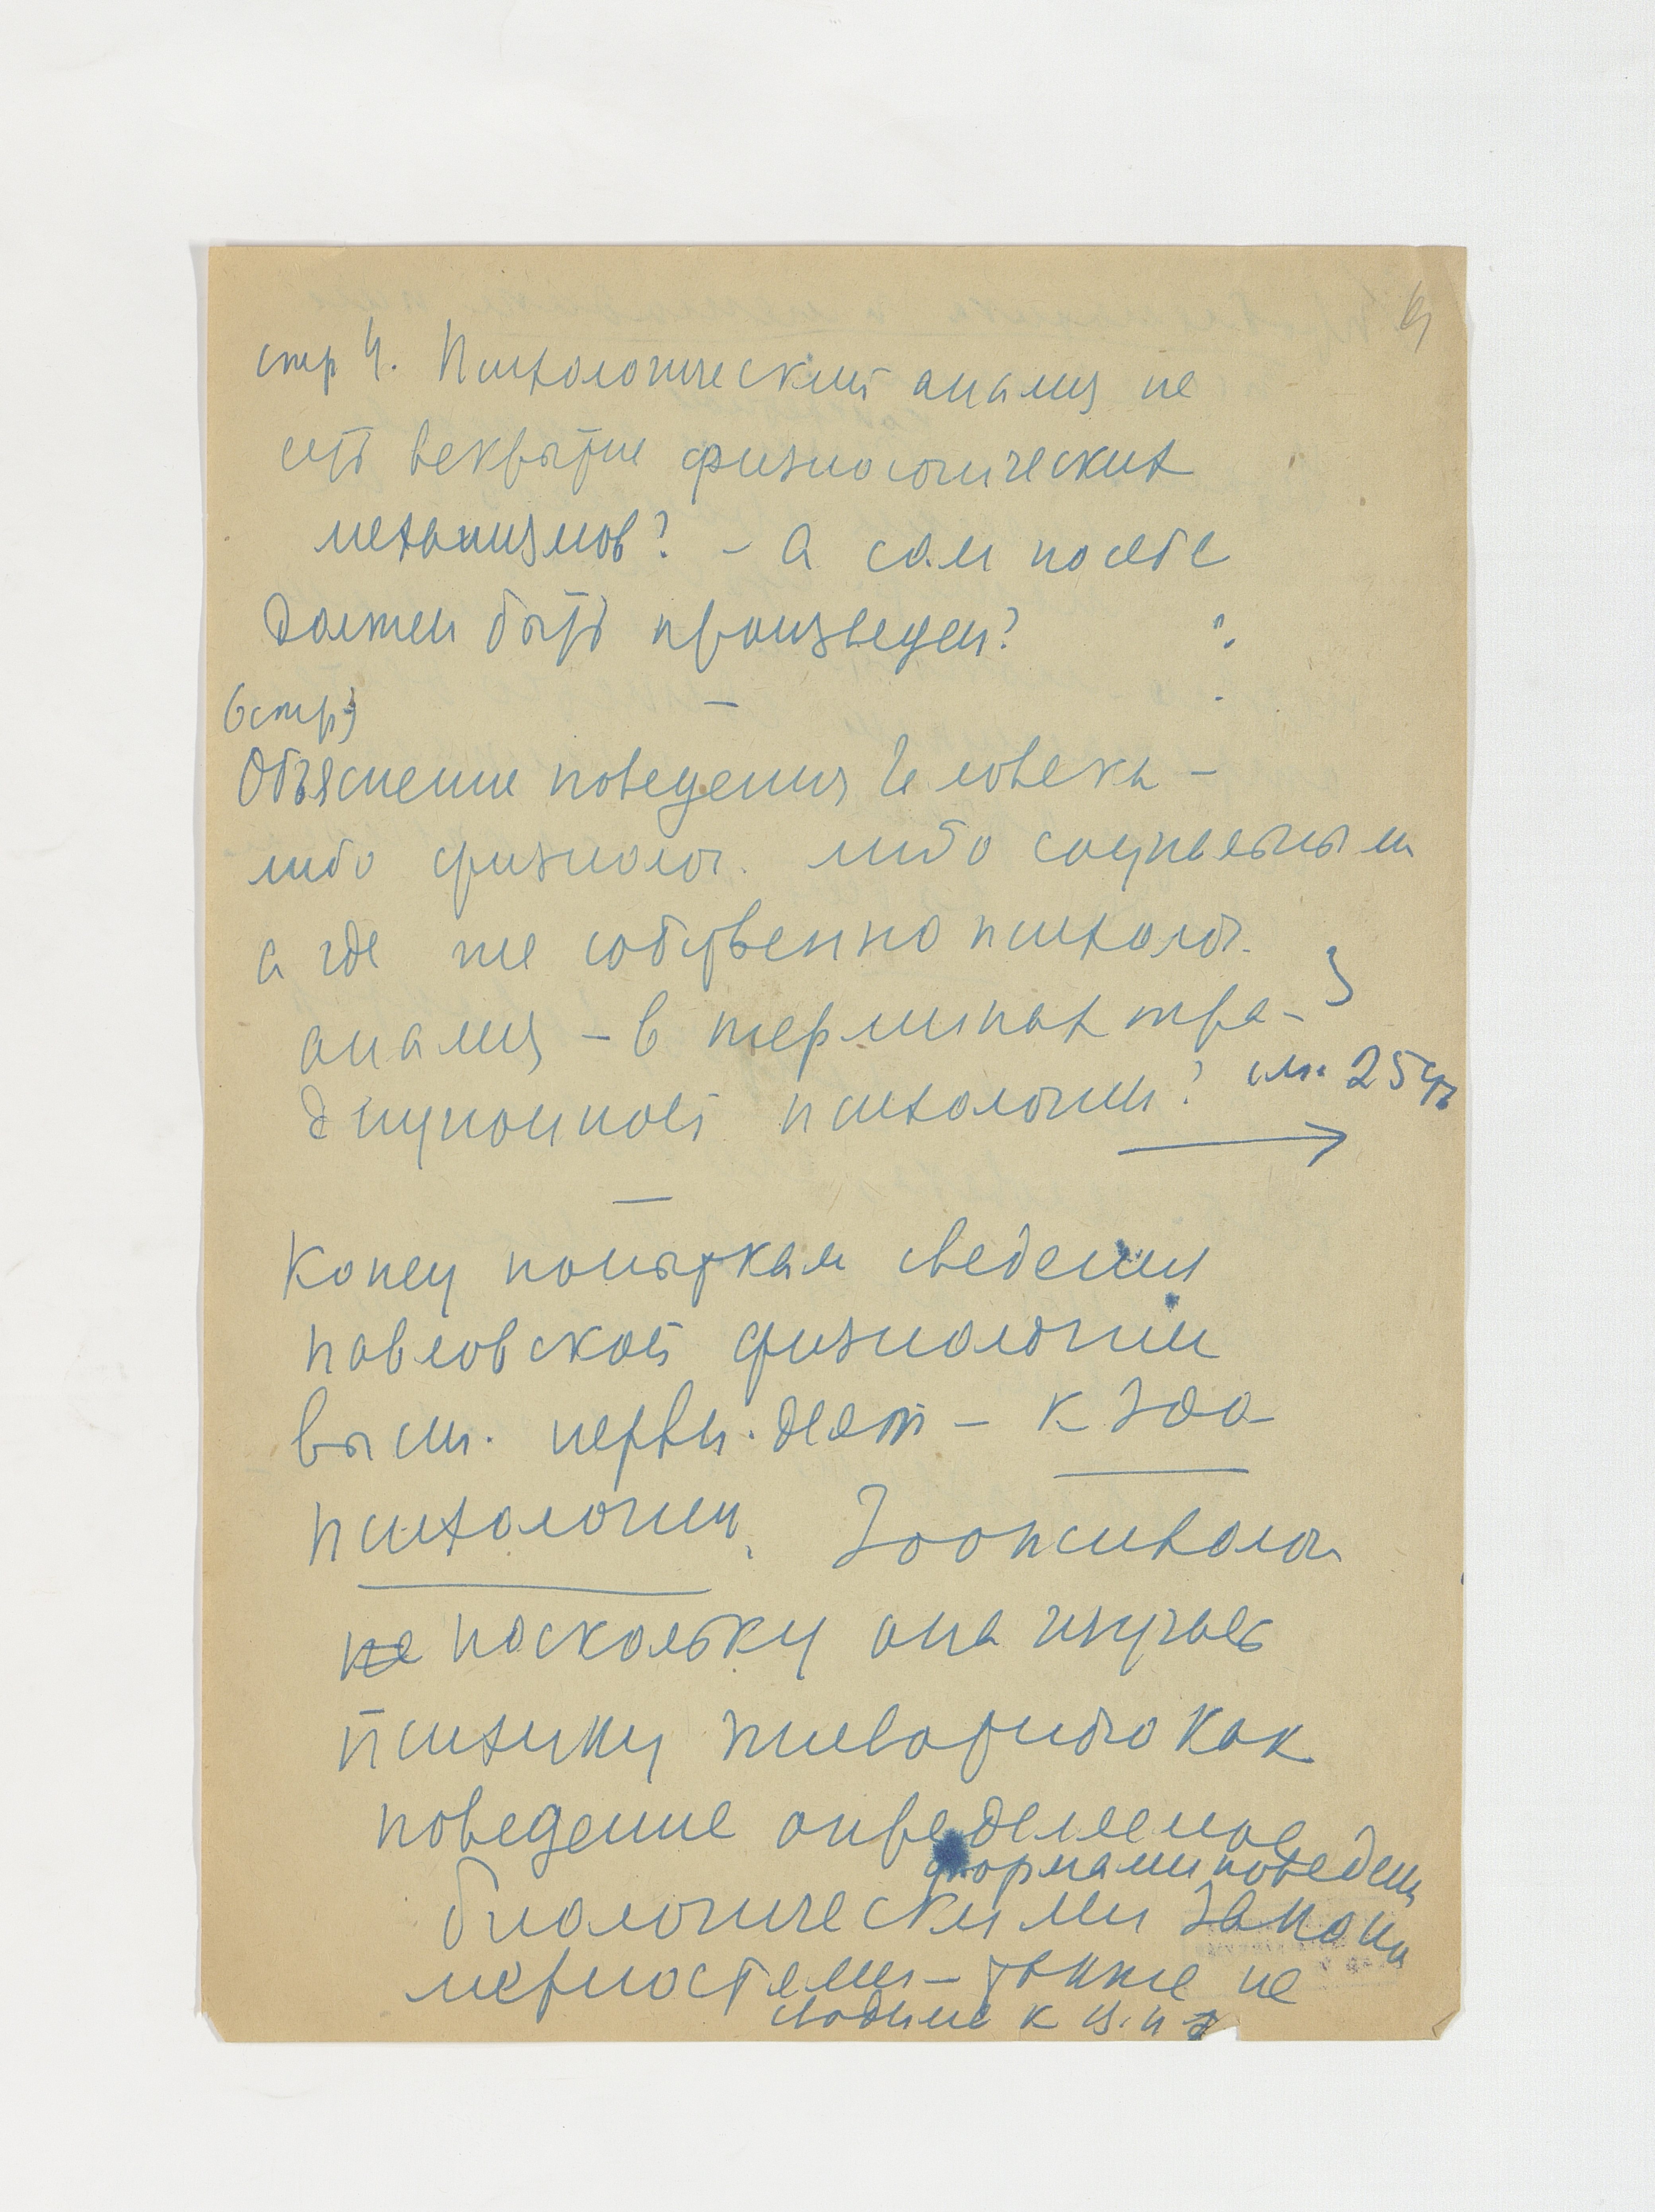 стр 4. Психологический анализ не
есть вскрытие физиологических
механизмов? – А сам по себе
должен быть произведен?
6 стр)
Объяснение поведения человека –
либо физиолог. либо социальным
а где же собственно психолог.
анализ – в терминах тра-
диционной психологии? см. 25 стр
Конец попыткам сведения
павловской физиологии
высш. нервн. деят – к зоо
психологии. Зоопсихолог
не поскольку она изучает
психику животного как
поведение определяемое
формами поведен
биологическими законо
мерностями – также не
сводиме к в. н д